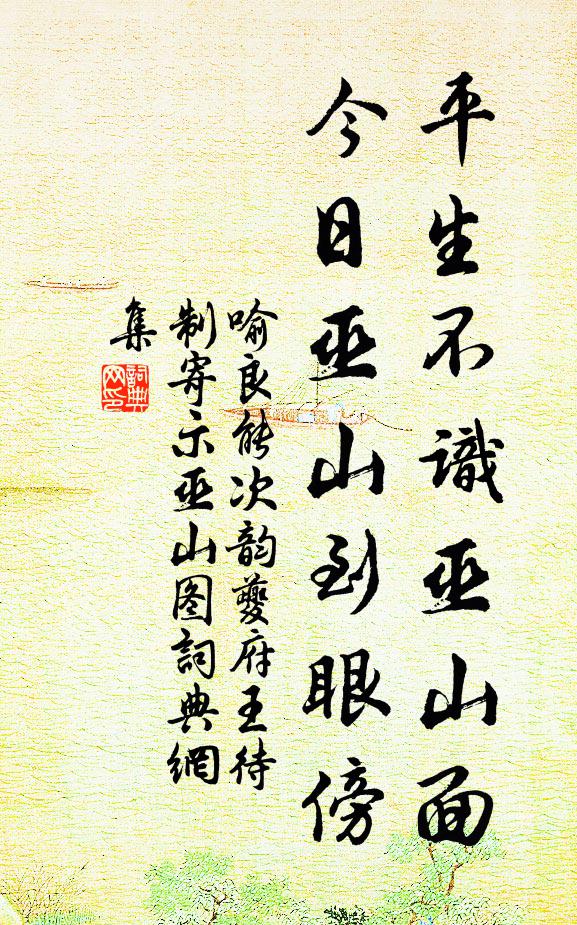 平生不識巫山面
今日巫山到眼傍
喻良能次韵夔府王待
制寄示巫山图詞典網
集
詞典
网印